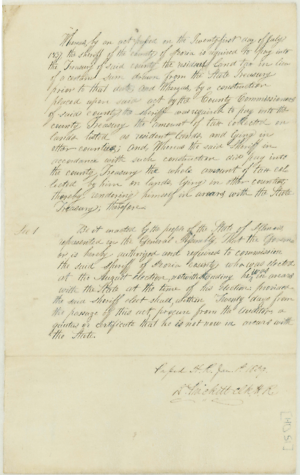 Whereas by an act passed on the Twenty first day of July
1837 the sheriff of the county of Brown is required to pay into
the Treasury of said county, the resident Land Tax in lieu
of a certain sum drawn from the State Treasury
prior to that date, and Whereas by a construction
placed upon said act by the County Commissioners
of said county the sheriff was required to pay into the
county Treasury the amount of tax collected on
lands listed as resident lands, and lying in
other counties; And Whereas the said Sheriff in
accordance with such construction did pay into
the county Treasury the whole amount of tax on
listed by him on lands lying in other counties
thereby rendering himself in arrears with the State
Treasury; therefore
Sec 1 Be it enacted by the People of the State of Illinois
represented in the General Assembly, That the Governor
be is hereby authorized and required to commission
the said Sheriff of Brown County who was elected
at the August election, notwithstanding he was in arrears
with the State at the time of his election; provided
the said sheriff elect shall within Twenty days from
the passage of this act, procure from the auditor a
quietus or certificate that he is not now in arrears with
the State.
Passed H. R. Jan 1839
D. Prickett Clk H. R.